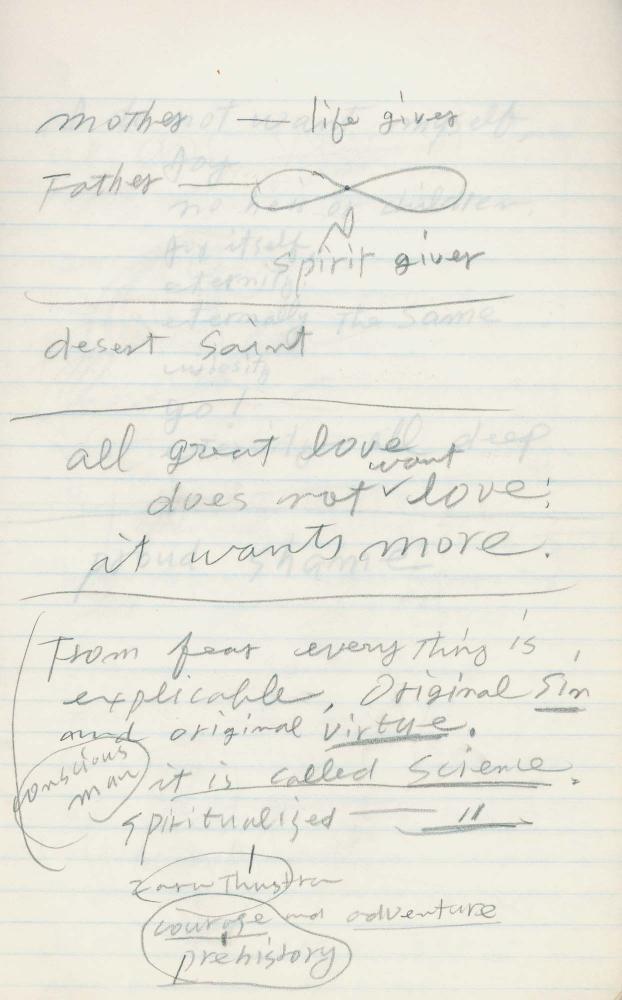 mother — life giver
Father —
spirit giver
desert saint
all great love
want
does not ✓ love;
it wants more.
From fear everything is
explicable, Original Sin
and original virtue.
conscious
man
it is called Science.
Spiritualized — "
Zarathustra
courage and adventure
prehistory